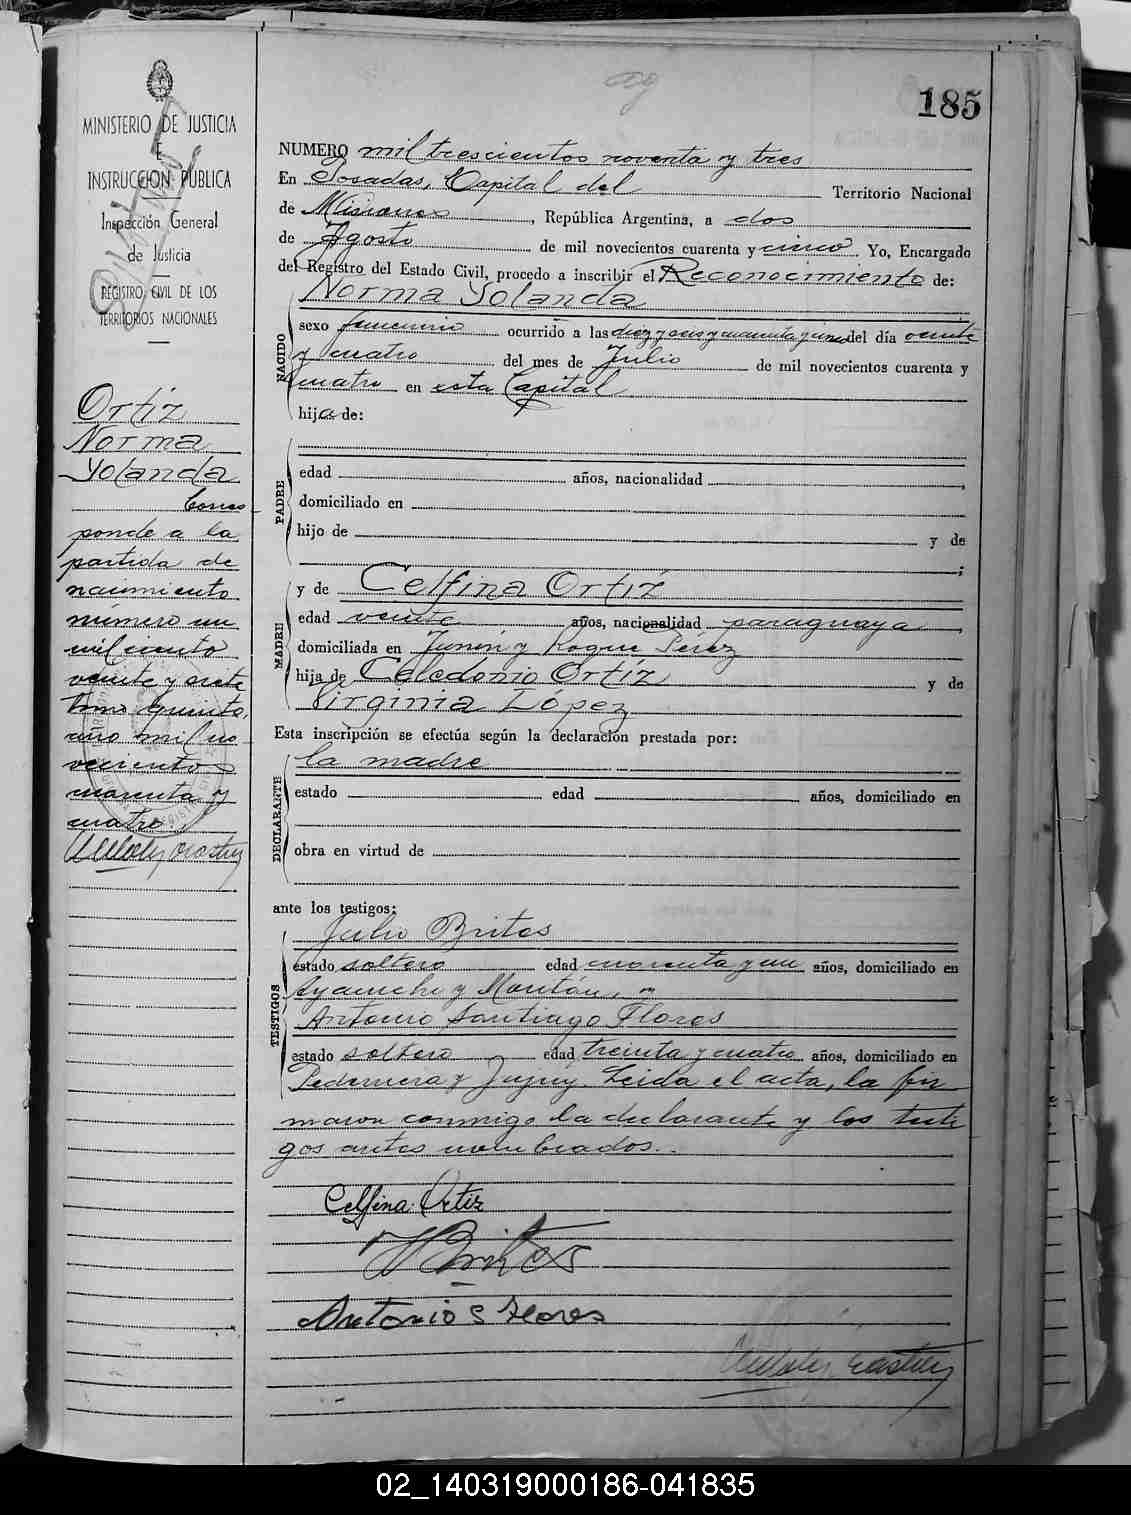 185
MINISTERIO DE JUSTICIA
E
INSTRUCCION PUBLICA
Inspección General
de Justicia
REGISTRO CIVIL DE LOS
TERRITORIOS NACIONALES
Ortíz
Norma
Yolanda
Corres
ponde a la
partida de
nacimiento
número un
mil ciento
veinte y siete
tomo quinto,
año mil no
vecientos
cuarenta y
cuatro.
NUMERO mil trescientos noventa y tres
En Posadas, Capital del Territorio Nacional
de Misiones, República Argentina, a dos
de Agosto de mil novecientos cuarenta y cinco Yo, Encargado
del Registro del Estado Civil, procedo a inscribir el Reconocimiento de:
NACIDO
Norma Yolanda
sexo femenino ocurrido a las diez y seis y cuarenta y uno del día veinte
y cuatro del mes de Julio de mil novecientos cuarenta y
cuatro en esta Capital
hija de:
PADRE
edad años, nacionalidad ,
domiciliado en
hijo de y de
;
MADRE
y de Celfina Ortíz
edad veinte años, nacionalidad paraguaya,
domiciliada en Junín y Roque Pérez
hija de Celedonio Ortíz y de
Virginia López
Esta inscripción se efectúa según la declaración prestada por:
DECLARANTE
la madre
estado edad años, domiciliado en
obra en virtud de
ante los testigos:
TESTIGOS
Julio Brites
estado soltero edad cuarenta y un años, domiciliado en
y
Antonio Santiago Flores
estado soltero edad treinta y cuatro años, domiciliado en
Pedernera y Jujuy. Leida el acta, la fir
maron conmigo la declarante y los testi
gos antes nombrados..
Celfina Ortiz
J Brites
Antonio S Flores
02_140319000186-041835